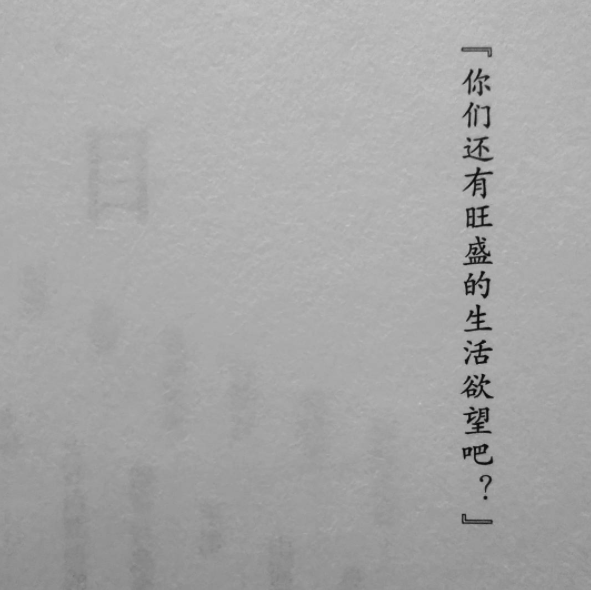 『你们还有旺盛的生活欲望吧？』